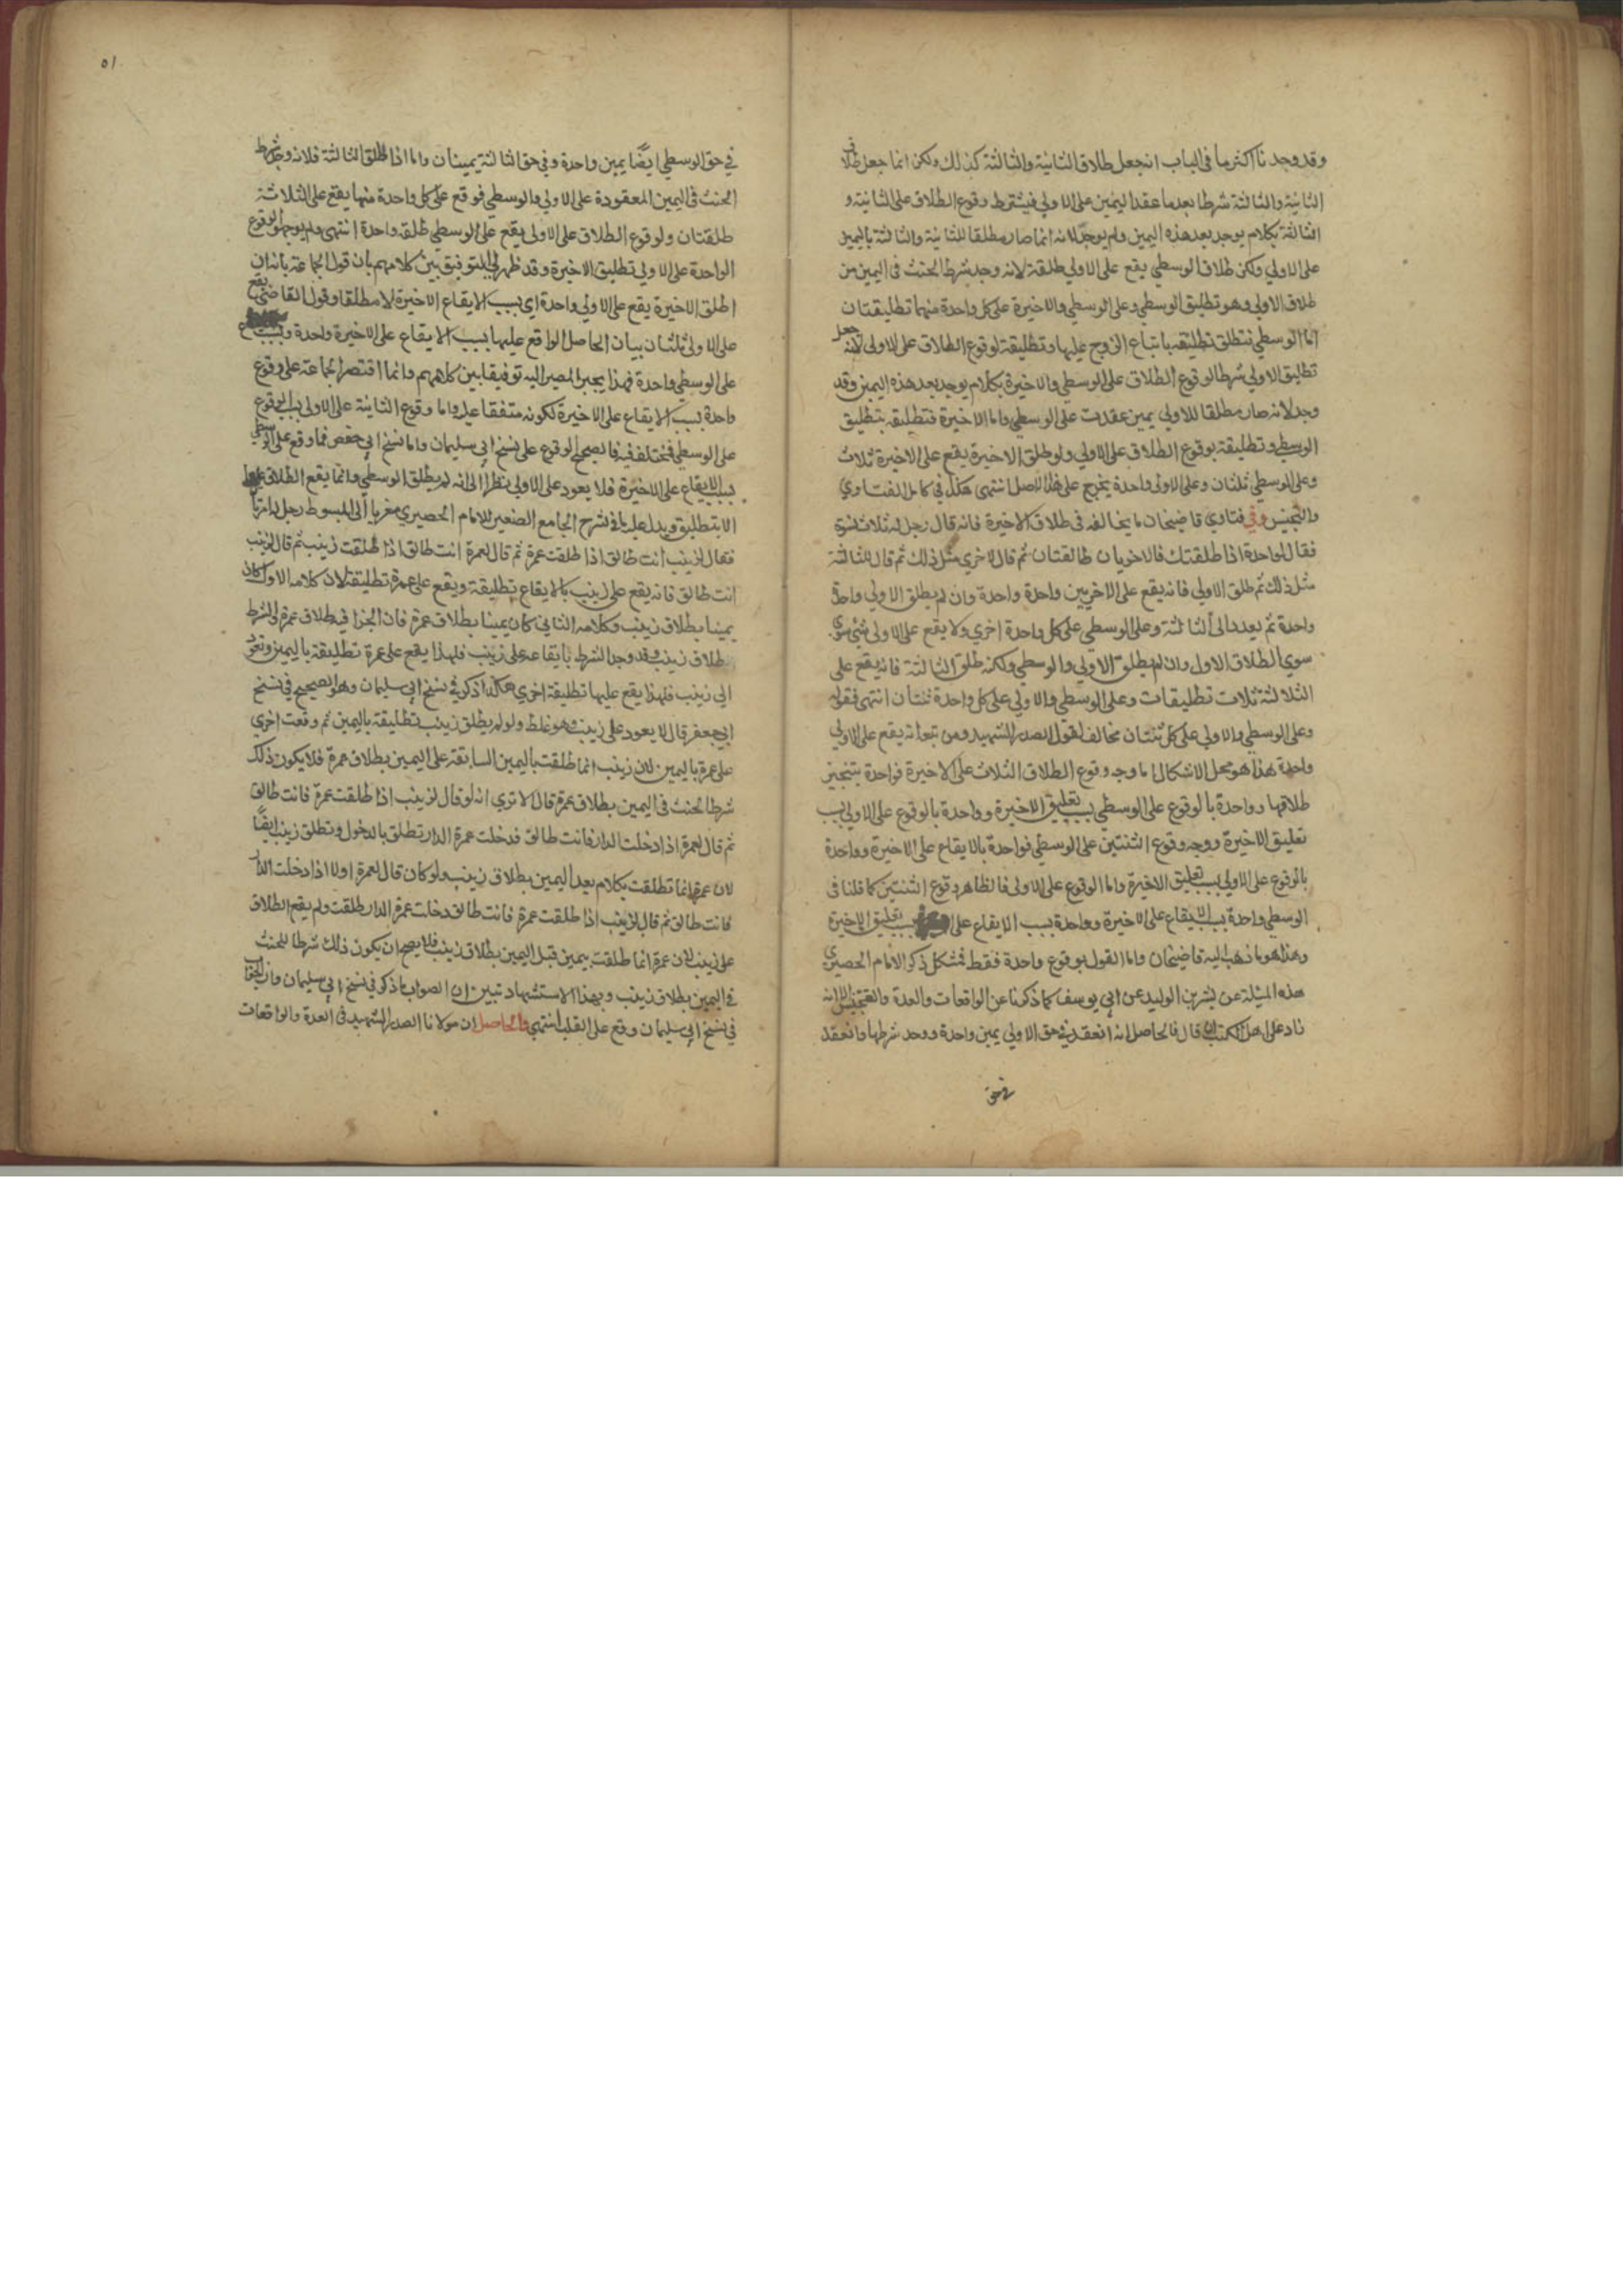 وقد وجدنا اكثر ما في الباب ان جعل طلاق الثانية والثالثة كذلك ولكن انما جعل طلاق
الثانية والثالثة شرطا بعدما عقد اليمين على الاولى فيشترط وقوع الطلاق على الثانية و
الثالثة بكلام يوجد بعد هذه اليمين ولم يوجد لانه انما صار مطلقا للثانية والثالثة باليمين
على الاولى ولكن طلاق الوسطي يقع على الاولى طلقة لانه وجد شرط الحنث في اليمين من
طلاق الاولى وهو تطليق الوسطي وعلى الوسطي والاخيرة على كل واحدة منهما تطليقتان
اما الوسطي فتطلق تطليقة باتباع الزوج عليها وتطليقة لوقوع الطلاق على الاولى لانه جعل
تطليق الاولى شرطا لوقوع الطلاق على الوسطي والاخيرة بكلام يوجد بعد هذه اليمين وقد
وجد لانه صار مطلقا للاولى بيمين عقدت على الوسطي واما الاخيرة فتطليقة بتطليق
الوسطي وتطليقة بوقوع الطلاق على الاولى ولو طلق الاخيرة يقع على الاخيرة ثلاث
وعلى الوسطي ثنتان وعلى الاولى واحدة يخرج على هذا الاصل انتهى هكذا في كامل الفتاوي
والتجنيس وفي فتاوي قاضيخان ما يخالفه في طلاق الاخيرة فانه قال رجل له ثلاث نسوة
فقال لواحدة اذا طلقتك فالاخريان طالقتان ثم قال للاخري مثل ذلك ثم قال للثالثة
مثل ذلك ثم طلق الاولى فانه يقع على الاخريين واحدة واحدة وان لم يطلق الاولى واحدة
واحدة ثم يعود الى الثالثة وعلى الوسطي على كل واحدة اخري ولا يقع على الاولى شيء سوي
سوي الطلاق الاول وان لم يطلق الاولى والوسطي ولكنه طلق الثالثة فانه يقع على
الثلاثة ثلاث تطليقات وعلى الوسطي والاولى على كل واحدة ثنتان انتهى فقوله
وعلى الوسطي والاولى على كل ثنتان مخالف لقول الصدر الشهيد ومن تبعه انه يقع على الاولى
واحدة هذا هو محل الاشكال اما وجه وقوع الطلاق الثلاث على الاخيرة فواحدة بتنجيز
طلاقها وواحدة بالوقوع على الوسطي بسبب تعليق الاخيرة وواحدة بالوقوع على الاولى بسبب
تعليق الاخيرة ووجه وقوع الثنتين على الوسطي فواحدة بالايقاع على الاخيرة وواحدة
بالوقوع على الاولى بسبب تعليق الاخيرة واما الوقوع على الاولى فالظاهر وقوع الثنتين كما قلنا في
الوسطي واحدة بسبب الايقاع على الاخيرة وواحدة بسبب الايقاع على بسبب تعليق الاخيرة
وهذا هو ما ذهب اليه قاضيخان واما القول بوقوع واحدة فقط فمشكل ذكر الامام الحصيري
هذه المسئلة عن بشر بن الوليد عن ابي يوسف كما ذكرنا عن الواقعات والعدة والتجنيس الا انه
زاد على اهل الكتب ان قال فالحاصل انه انعقد في حق الاولى يمين واحدة ووجد شرطها وانعقد
في حق
٥١
في حق الوسطي ايضا يمين واحدة وفي حق الثالثة يمينان واما اذا طلق الثالثة فلانه وجد شرط
الحنث في اليمين المعقودة على الاولى والوسطي فوقع على كل واحدة منهما يقع على الثلاثة
طلقتان ولوقوع الطلاق على الاولى يقع على الوسطي طلقة واحدة انتهى ولم يوجهوا وقوع
الواحدة على الاولى تطليق الاخيرة وقد ظهر لي التوفيق بين كلامهم بان قول الجماعة بانه ان
طلق الاخيرة يقع على الاولى واحدة اي بسبب الايقاع الاخيرة لا مطلقا وقول القاضي يقع
على الاولى ثنتان بيان الحاصل الواقع عليها بسبب الايقاع على الاخيرة واحدة وبسبب
على الوسطي واحدة فهذا يجب المصير اليه توفيقا بين كلامهم وانما اقتصر الجماعة على وقوع
واحدة بسبب الايقاع على الاخيرة لكونه متفقا عليه واما وقوع الثانية على الاولى بسبب الوقوع
على الوسطي فمختلف فيه فالصحيح الوقوع على نسخ ابي سليمان واما نسخ ابي حفص فما وقع على الوسطي
بسبب الايقاع على الاخيرة فلا يعود على الاولى نظرا الى انه لم يطلق الوسطي وانما يقع الطلاق
الا بتطليق ويدل عليه ما في شرح الجامع الصغير للامام الحصيري مغربا الى المبسوط رجل له امرأتان
فقال لزينب انت طالق اذا طلقت عمرة ثم قال لعمرة انت طالق اذا طلقت زينب ثم قال لزينب
انت طالق فانه يقع على زينب بالايقاع تطليقة ويقع على عمرة تطليقة لان كلامه الاول كان
يمينا بطلاق زينب وكلامه الثاني كان يمينا بطلاق عمرة فان الجزا فيه طلاق عمرة والشرط
طلاق زينب وقد وجد الشرط بايقاعه على زينب فلهذا يقع على عمرة تطليقة باليمين وتعود
الى زينب فلهذا يقع عليها تطليقة اخري هكذا ذكر في نسخ ابي سليمان وهو الصحيح في نسخ
ابي جعفر قال لا يعود على زينب وهو غلط ولو لم يطلق زينب تطليقة باليمين ثم وقعت اخري
على عمرة باليمين لان زينب انما طلقت باليمين السابقة على اليمين بطلاق عمرة فلا يكون ذلك
شرط الحنث في اليمين بطلاق عمرة قال الا تري انه لو قال لزينب اذا طلقت عمرة فانت طالق
ثم قال لعمرة اذا دخلت الدار فانت طالق فدخلت عمرة الدار تطلق بالدخول وتطلق زينب ايضا
لان عمرة انما تطلقت بكلام بعد اليمين بطلاق زينب ولو كان قال لعمرة اولا اذا دخلت الدار
فانت طالق ثم قال لزينب اذا طلقت عمرة فانت طالق دخلت عمرة الدار طلقت ولم يقع الطلاق
على زينب لان عمرة انما طلقت بيمين قبل اليمين بطلاق زينب فلا يصح ان يكون ذلك شرطا للحنث
في اليمين بطلاق زينب وبهذا الاستشهاد تبين ان الصواب ما ذكر في نسخ ابي سليمان وان الجواب
في نسخ ابي سليمان وقع على القلب انتهى والحاصل ان مولانا الصدر الشهيد في العدة والواقعات